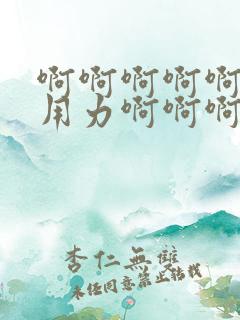 啊啊啊啊啊
用力啊啊啊
杏仁無雙
未经同意禁止转载